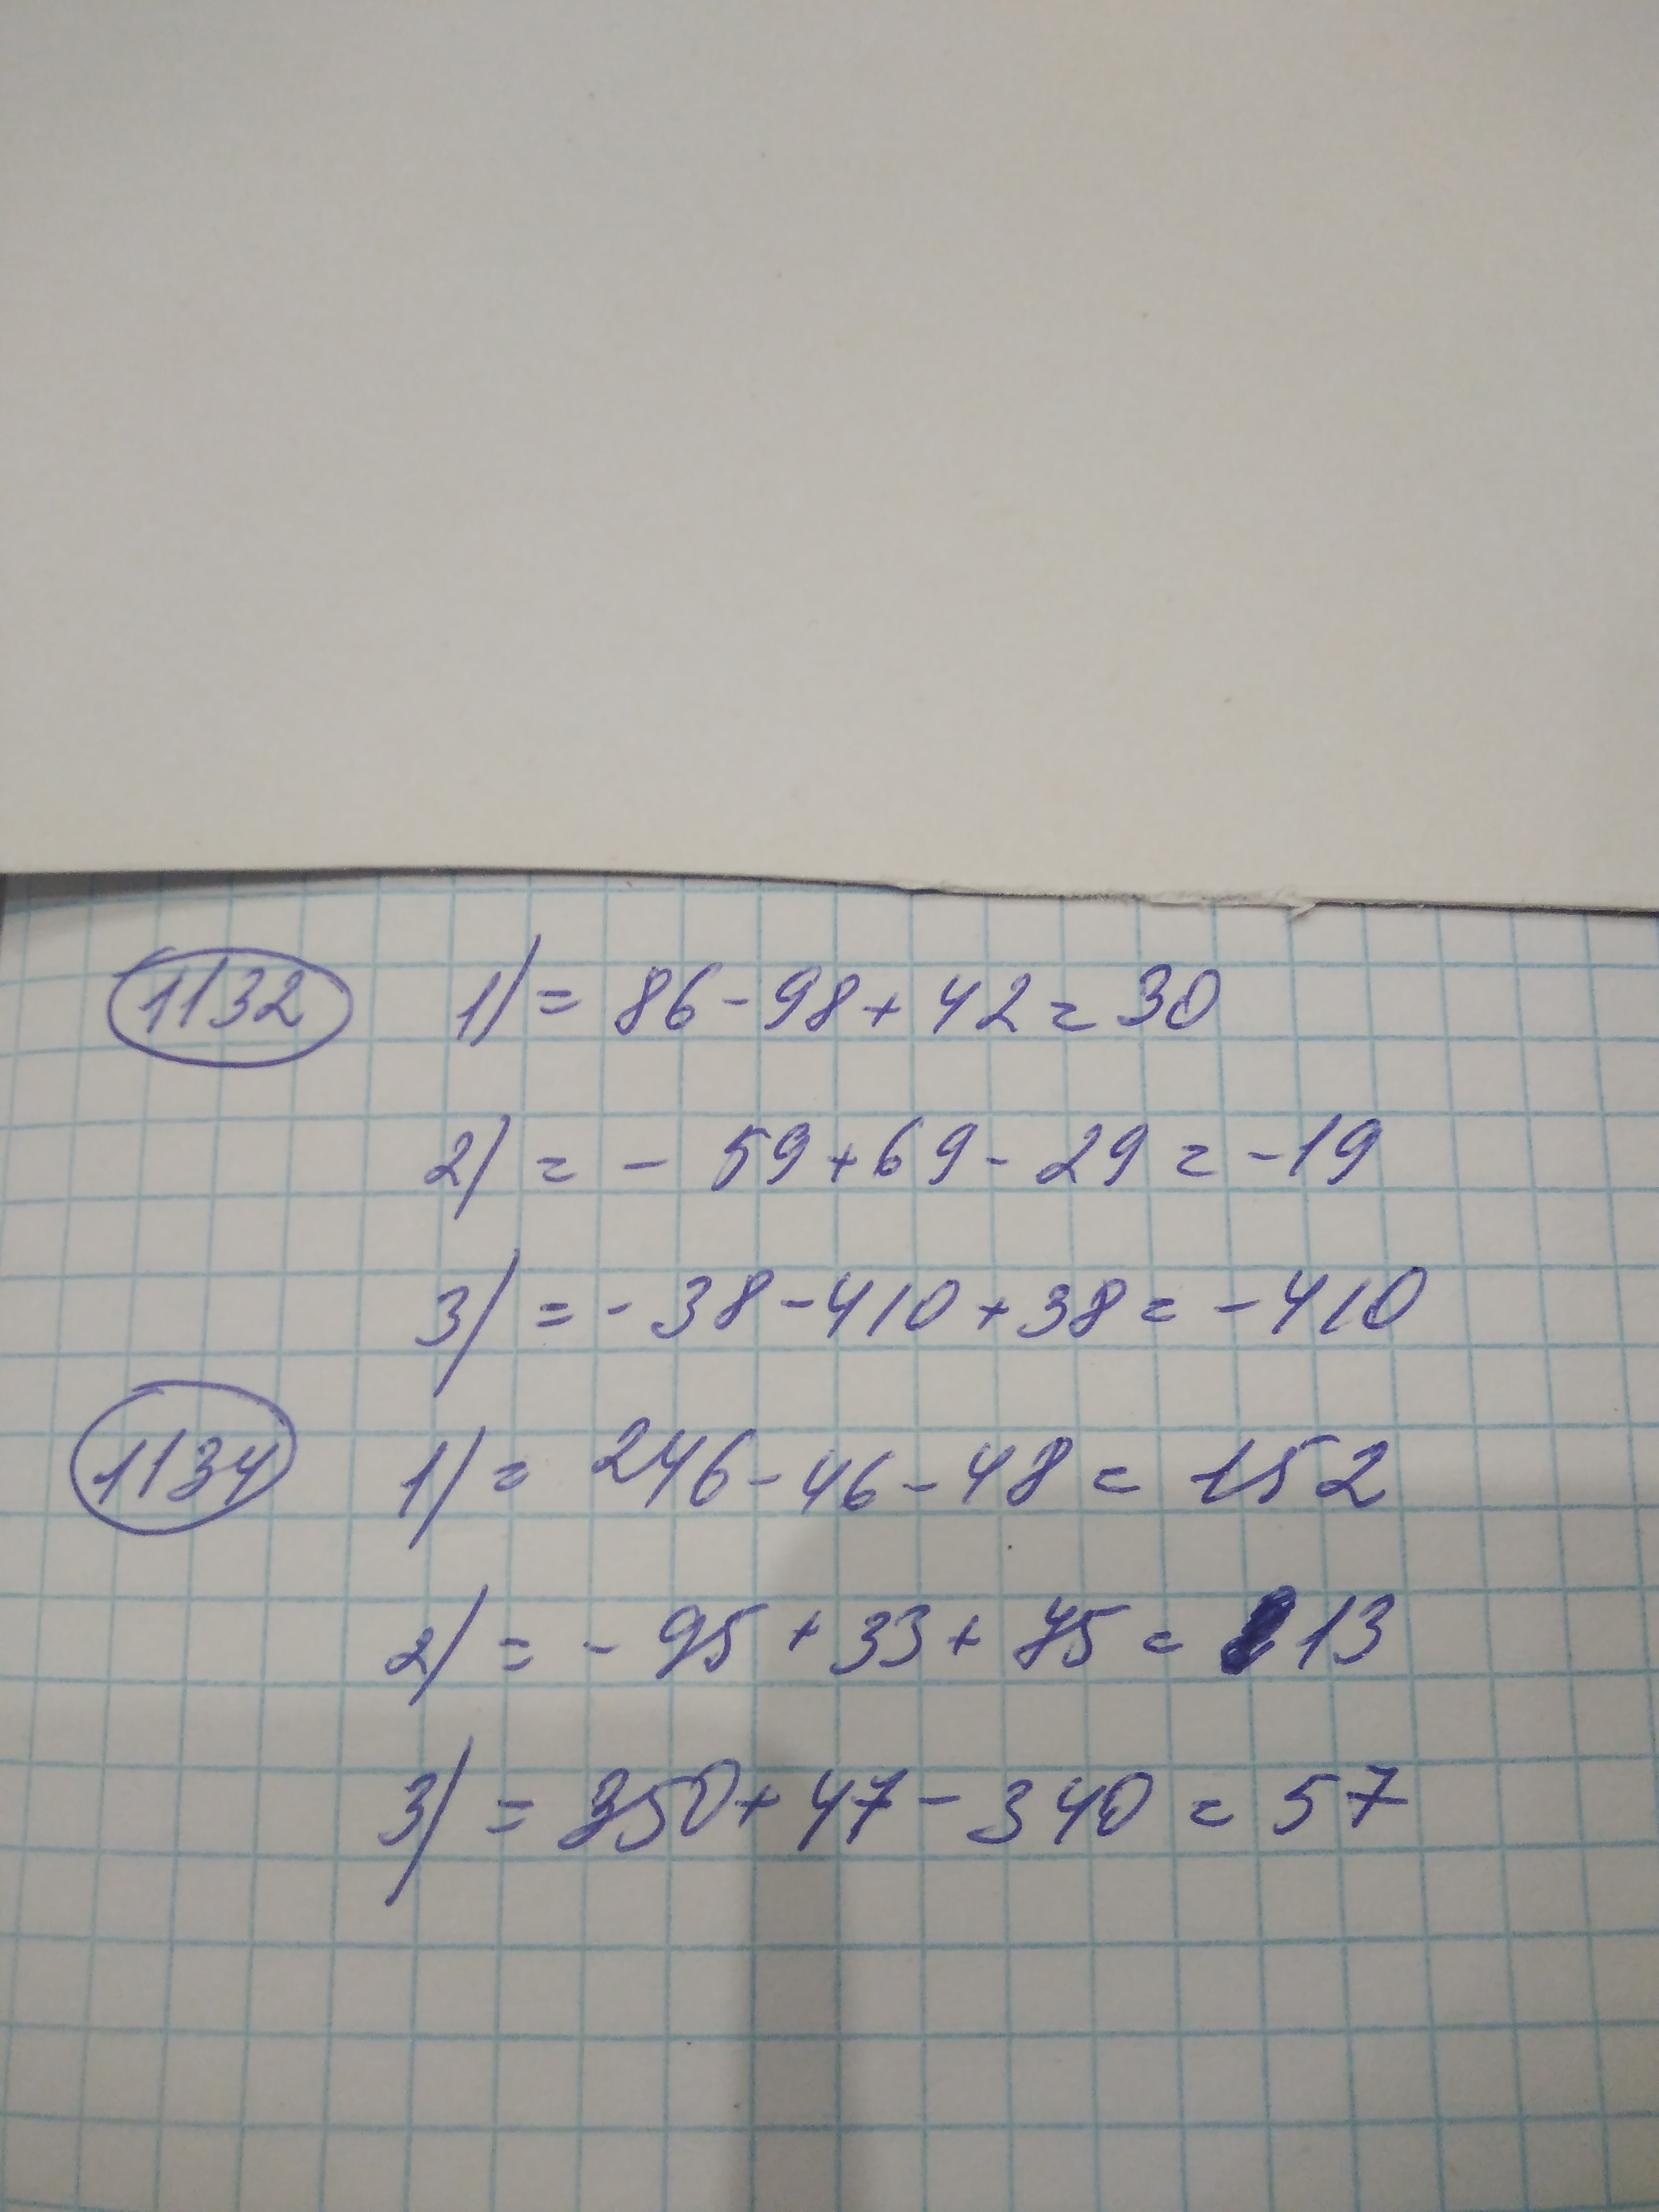 1132 1) = 86 - 98 + 42 = 30
2) = - 59 + 69 - 29 = -19
3) = - 38 - 410 + 38 = - 410
1134 1) = 246 - 46 - 48 = 152
2) = - 95 + 33 + 75 = 13
3) = 350 + 47 - 340 = 57